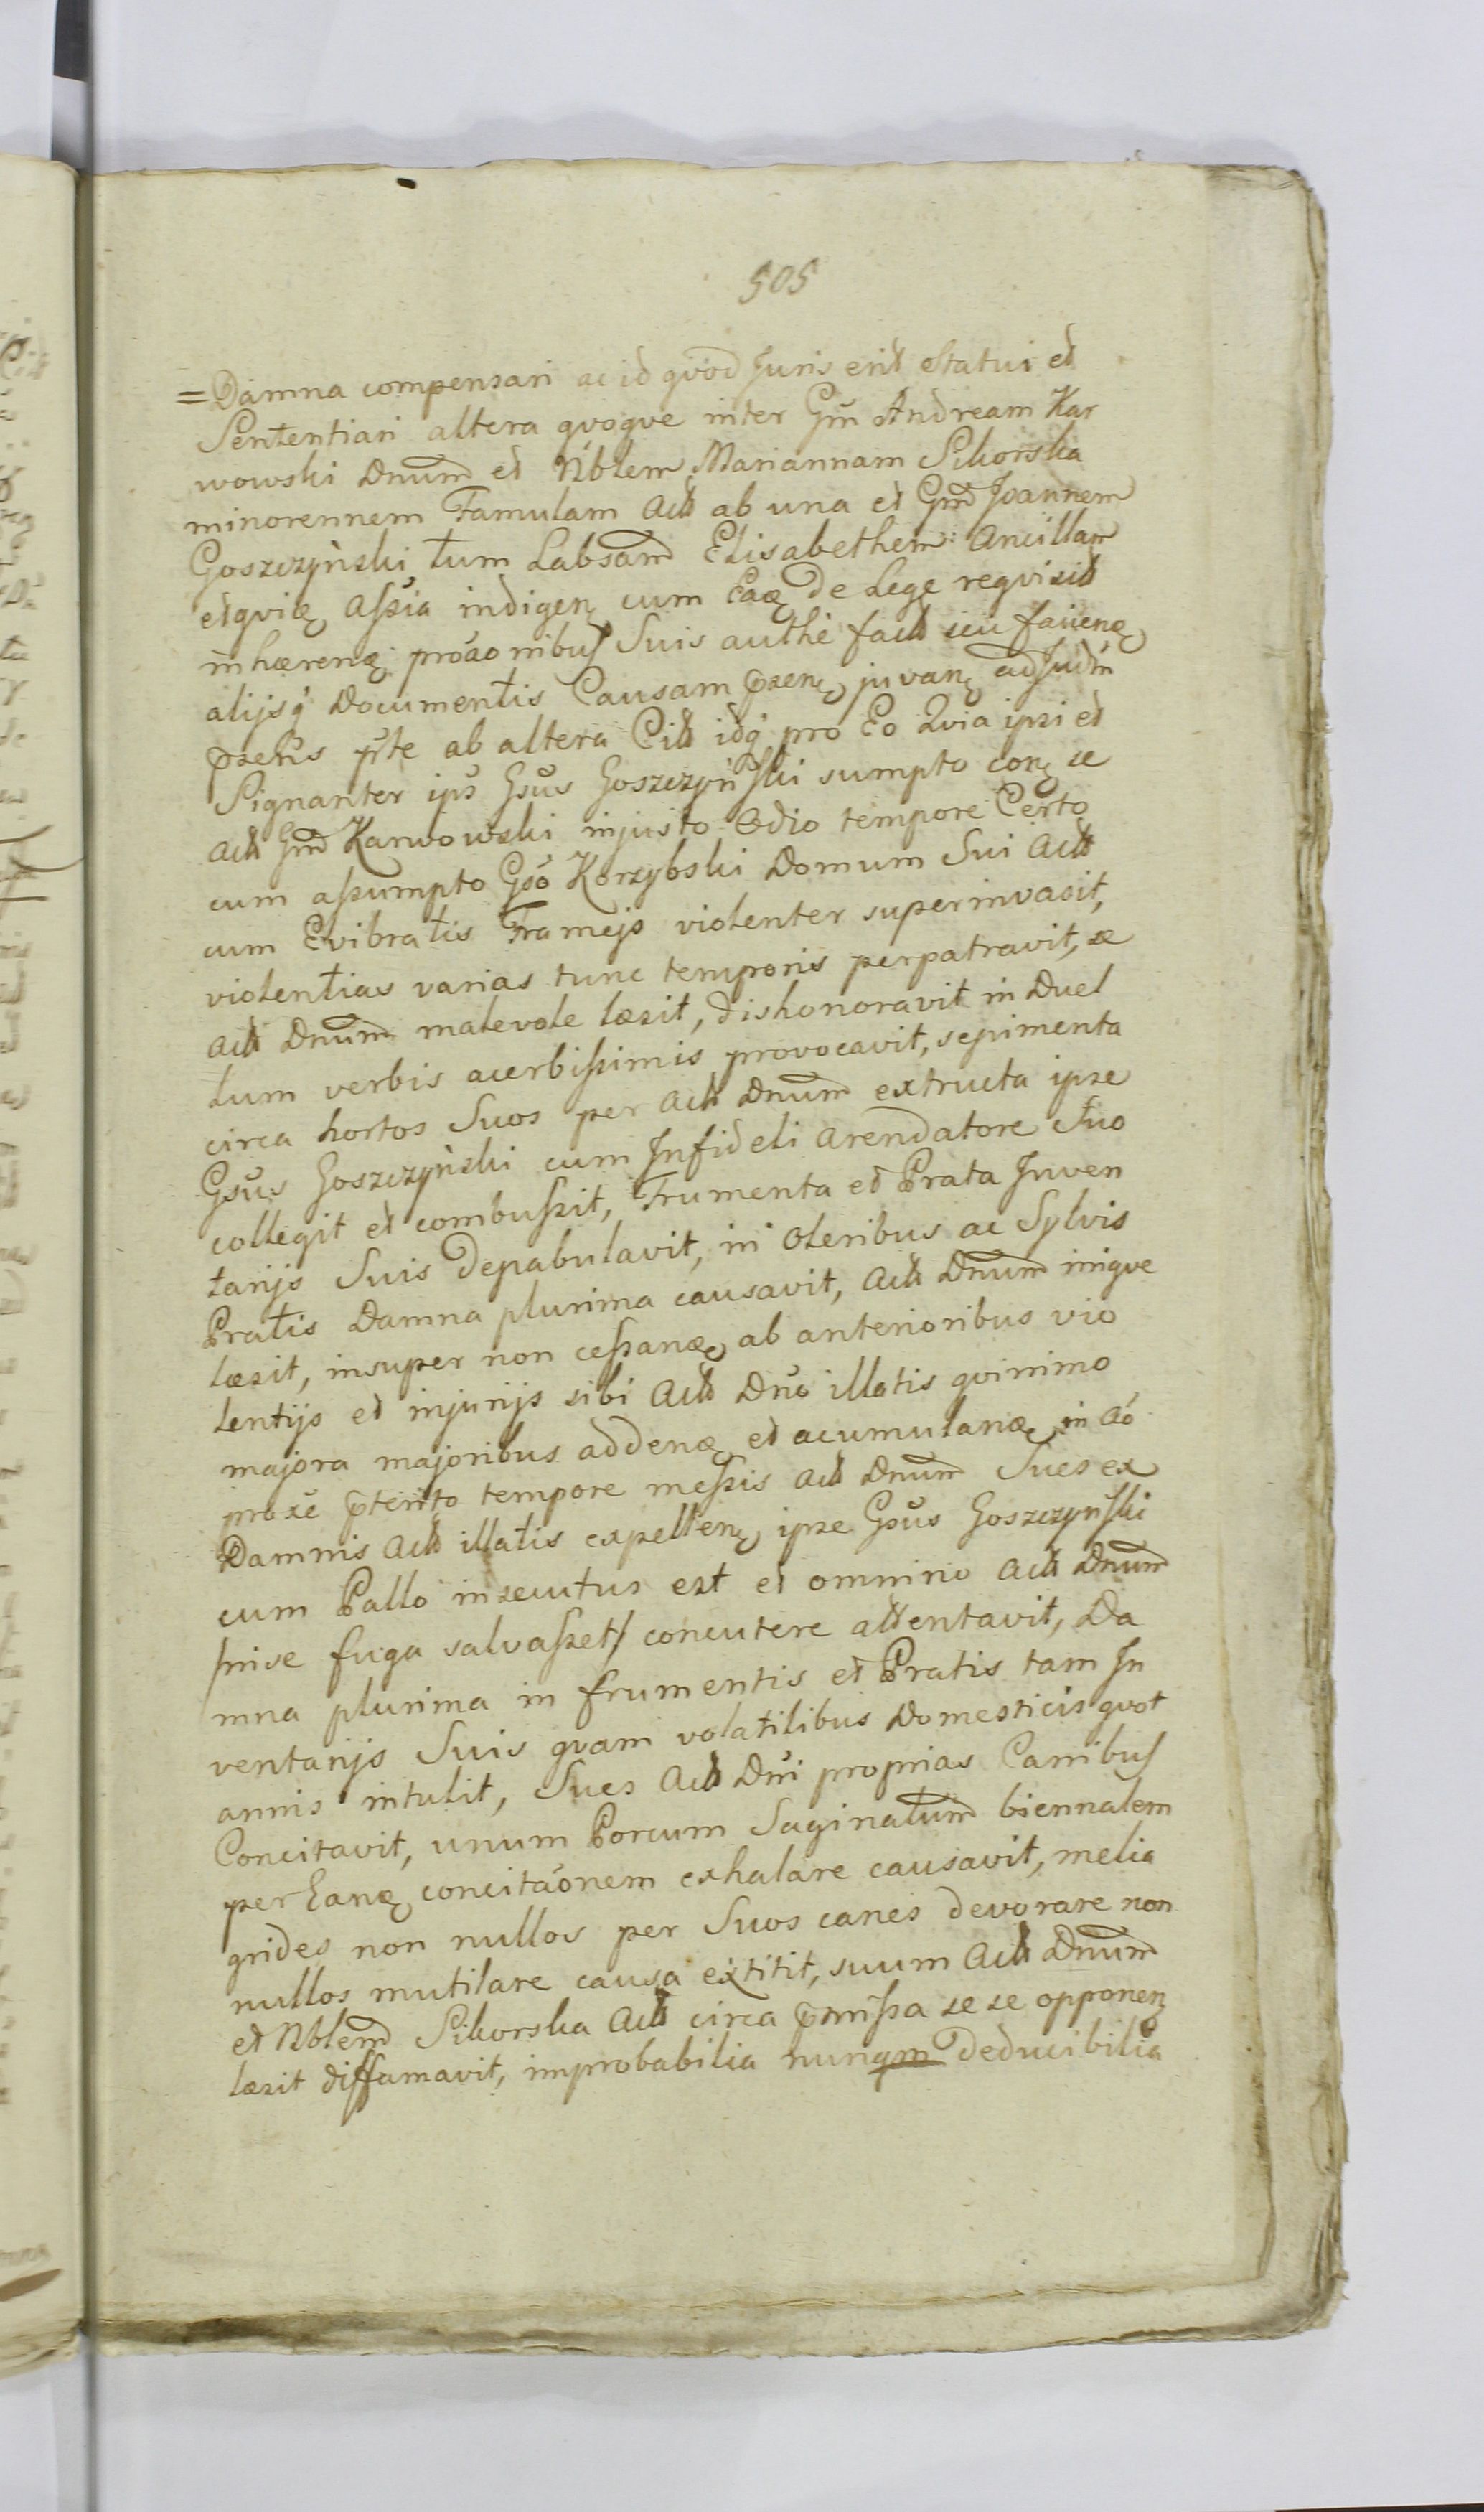 505
=Damna compensari ac id qvod Juris erit Statui et
Sententiari altera qvoqve inter Gm̃ Andream Kar
wowski Dnum̃ et Nblem Mariannam Sikorska
minorennem Famulam Act ab una et Gm̃ Joannem
Goszczyński tum Labsam̃ Elisabethem Ancillam
Assia indigen cum Ea de Lege reqvisit
inhæren suis authẽ fact seu faven
alijsq Documentis Causam pzen juvan
pzens pte ab altera Cit idq pro Eo Qvia ipsi et
Signanter ips Gsus Goszczyński sumpto con se
Act Gm̃ Karwowski injusto Odio tempore Certo
cum assumpto Gsõ Korzybski Domum Sui Act
cum Evibratis Framejs violenter superinvasit,
violentias varias tunc temporis perpatravit, se
Act Dnum̃ malevole læsit, dishonoravit in Duel
lum verbis acerbissimis provocavit, sepimenta
circa hortos Suos per Act Dnum̃ extructa ipse
Gsus Goszczyński cum Infideli Arendatore Suo
collegit et combussit, Frumenta et Prata Inven
tarijs Suis Depabulavit, in Oleribus ac Sylvis
Pratis Damna plurima causavit, Act Dnum̃ iniqve
læsit, insuper non cessanæ ab anterioribus vio
lentijs et injurijs sibi Act Dno illatis qvinimo
majora majoribus addenæ et acumulanæ in Aõ
proxẽ pterito tempore messis Act Dnum̃ Sues ex
Damnis Act illatis expellen ipse Gsus Goszczyński
cum Pallo insecutus est et omnino Act Dnum̃
/nise fuga salvasset/ concutere attentavit, Da
mna plurima in frumentis et Pratis tam In
ventarijs Suis qvam volatilibus Domesticis qvot
annis intulit, Sues Act Dni proprias Canibus
Concitavit, unum Porcum Saginatum̃ biennalem
per Ean concitaõnem exhalare causavit, melia
grides non nullos per Suos canes devorare non
nullos mutilare causa extitit, suum Act Dnum̃
et Nblem̃ Sikorska Act circa pmissa se se opponen
læsit diffamavit, improbabilia nunqm Deducibilia